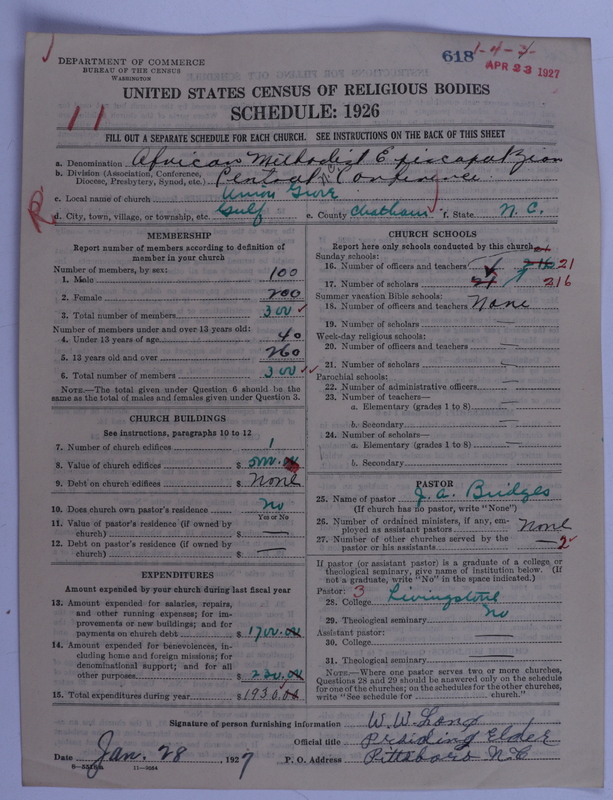 618 1-4-3-
APR 23 1927
DEPARTMENT OF COMMERCE
BUREAU OF THE CENSUS
WASHINGTON
UNITED STATES CENSUS OF RELIGIOUS BODIES
SCHEDULE: 1926
11
FILL OUT A SEPARATE SCHEDULE FOR EACH CHURCH. SEE INSTRUCTIONS ON THE BACK OF THIS SHEET
a. Denomination African Methodist Episcopal Zion
b. Division (Association, Conference, Diocese, Presbytery, Synod, etc.) Central N.C. Conference
c. Local name of church Union Grove
d. City, town, village, or township, etc. Gulf e. County Chatham f. State N. C.
R
MEMBERSHIP
Report number of members according to definition of
member in your church
Number of members, by sex:
1. Male 100
2. Female 200
3. Total number of members 300
Number of members under and over 13 years old:
4. Under 13 years of age 40
5. 13 years old and over 260
6. Total number of members 300
NOTE.—The total given under Question 6 should be the
same as the total of males and females given under Question 3.
CHURCH BUILDINGS
See instructions, paragraphs 10 to 12
7. Number of church edifices 1
8. Value of church edifices $ 5000.00
9. Debt on church edifices $ None
10. Does church own pastor's residence No
Yes or No
11. Value of pastor's residence (if owned by
church) $ —
12. Debt on pastor's residence (if owned by
church) $ —
EXPENDITURES
Amount expended by your church during last fiscal year
13. Amount expended for salaries, repairs,
and other running expenses; for im-
provements or new buildings; and for
payments on church debt $ 1700.00
14. Amount expended for benevolences, in-
cluding home and foreign missions; for
denominational support; and for all
other purposes $ 230.00
15. Total expenditures during year $ 1930.00
CHURCH SCHOOLS
Report here only schools conducted by this church
Sunday schools:
16. Number of officers and teachers 216 21
17. Number of scholars 21 216
Summer vacation Bible schools:
18. Number of officers and teachers None
19. Number of scholars —
Week-day religious schools:
20. Number of officers and teachers —
21. Number of scholars —
Parochial schools:
22. Number of administrative officers —
23. Number of teachers—
a. Elementary (grades 1 to 8) —
b. Secondary —
24. Number of scholars—
a. Elementary (grades 1 to 8) —
b. Secondary
PASTOR
25. Name of pastor J. A. Bridges
(If church has no pastor, write "None")
26. Number of ordained ministers, if any, em-
ployed as assistant pastors None
27. Number of other churches served by the
pastor or his assistants — 2
If pastor (or assistant pastor) is a graduate of a college or
theological seminary, give name of institution below. (If
not a graduate, write "No" in the space indicated.)
Pastor: 3
28. College Livingstone
29. Theological seminary No
Assistant pastor:
30. College —
31. Theological seminary —
NOTE.—Where one pastor serves two or more churches,
Questions 28 and 29 should be answered only on the schedule
for one of the churches; on the schedules for the other churches,
write "See schedule for ........ church."
Signature of person furnishing information W. W. Long
Official title Presiding Elder
Date Jan. 28 1927 P. O. Address Pittsboro N.C
8—5516a 11—9064